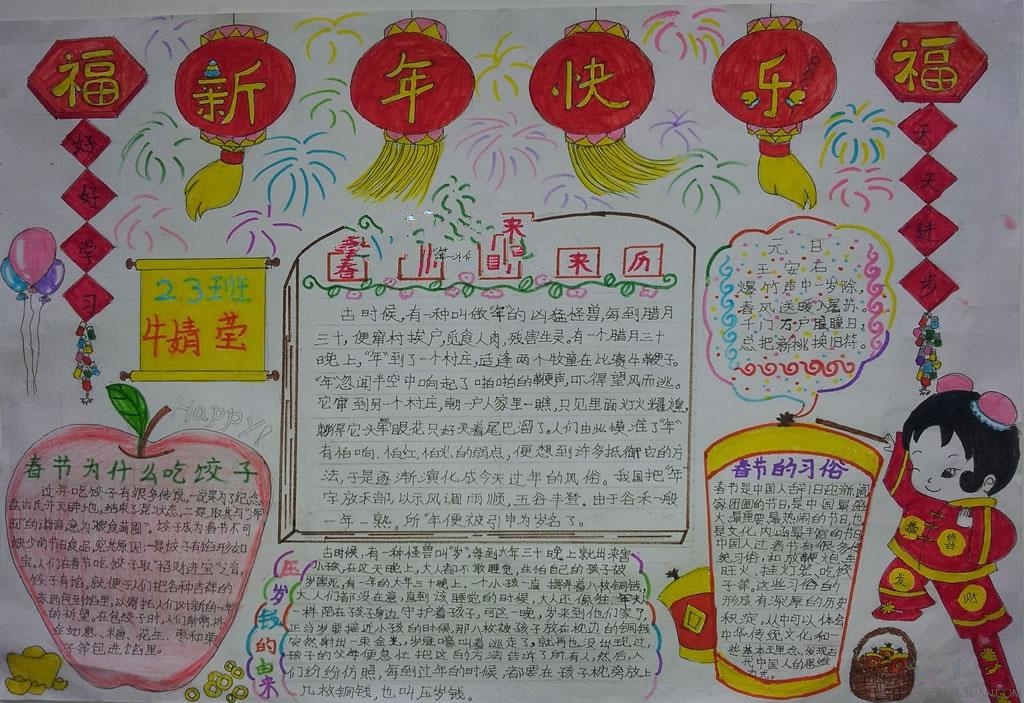 福
新年快乐
福
好好学习
天天进步
2.3班
牛婧莹
Happy!
来历
古时候,有一种叫做“年”的凶猛怪兽,每到腊月
三十,便窜村挨户,觅食人肉,残害生灵。有一个腊月三十
晚上,“年”到了一个村庄,适逢两个牧童在比赛牛鞭子。
“年”忽闻半空中响起了啪啪的鞭声,吓得望风而逃。
它窜到另一个村庄,朝一户人家里一瞧,只见里面灯火辉煌,
刺得它头晕眼花只好夹着尾巴溜了。人们由此摸准了“年”
有怕响、怕红、怕光的弱点,便想到许多抵御它的方
法,于是逐渐演化成今天过年的风俗。我国把“年”
字放禾部,以示风调雨顺,五谷丰登。由于谷禾一般
一年一熟。所“年”便被引申为岁名了。
元日
王安石
爆竹声中一岁除,
春风送暖入屠苏。
千门万户曈曈日,
总把新桃换旧符。
春节为什么吃饺子
过年吃饺子有很多传说,一说是为了纪念
盘古氏开天辟地,结束了混状态,二是取其与
的谐音,意为“粮食满囤”。饺子成为春节不可
缺少的节日食品,究其原因:一是饺子有馅形如
宝,人们在春节吃饺子取“招财进宝”之音,
饺子有馅,就便于人们把各种吉祥的
东西包到馅里,以寄托人们对新的一年
的祈望。在包饺子时,人们常常将
金如意、糖、花生、枣和栗
子等包进馅里。
压岁钱的由来
古时候,有一种怪兽叫“岁”,每到大年三十晚上就出来害
小孩,在这天晚上,大人都不敢睡觉,在怕自己的孩子被
岁害死,有一年的大年三十晚上,一个小孩一直摆弄着八枚铜钱,
大人们都没在意,直到该睡觉的时候,大人还像往年
一样陪在孩子身边守护着孩子,可这一晚,岁来到他们家了,
正当岁要接近小孩的时候,那八枚被孩子放在枕边的铜钱
突然射出一束金光,岁嚎叫着逃走了,就再也没出现过,
孩子的父母便急忙把这的方法告诉了所有人,然后人
们纷纷仿照,每到过年的时候,都要在孩子枕旁放上
几枚铜钱,也叫压岁钱。
春节的习俗
春节是中国人吉旧日迎新阖
家团圆的节日,是中国最盛
大、最重要、最热闹的节日,也
是文化内涵最丰富的节日
中国人过春节有很多传
统习俗,如贴春联、放鞭炮、
旺火、挂灯笼、吃饺
子等。这些习俗的
形成有深厚的历史
积淀,从中可以体会
中华传统文化和一
些基本理念,发现古
代中国人的思维
恭喜
发财